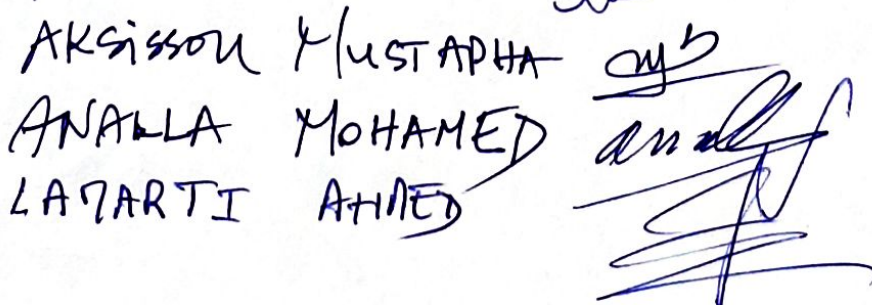 AKSISSOU MUSTAPHA
ANALLA MOHAMED
LAMARTI AHMED